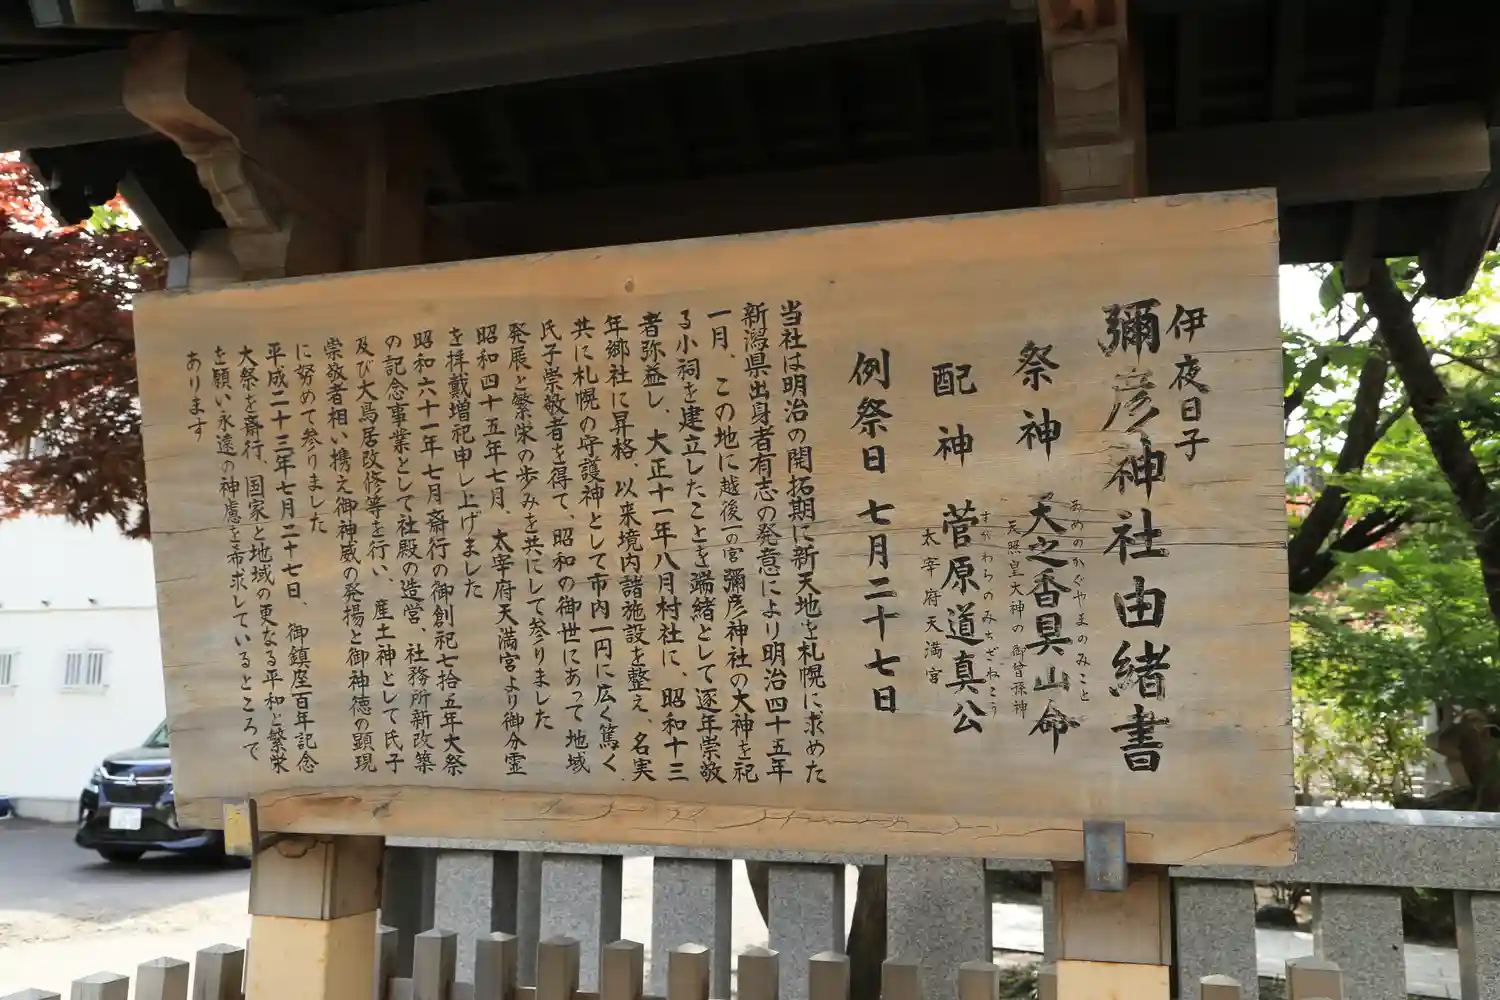 伊夜日子
彌彦神社由緒書
祭神 天之香具山命
あめのかぐやまのみこと
天照皇大神の御曾孫神
配神 菅原道真公
すがわらのみちざねこう
太宰府天満宮
例祭日 七月二十七日
当社は明治の開拓期に新天地を札幌に求めた
新潟県出身者有志の発意により明治四十五年
一月、この地に越後一の宮彌彦神社の大神を祀
る小祠を建立したことを端緒として逐年崇敬
者弥益し、大正十一年八月村社に、昭和十三
年郷社に昇格、以来境内諸施設を整え、名実
共に札幌の守護神として市内一円に広く篤く
氏子崇敬者を得て、昭和の御世にあって地域
発展と繁栄の歩みを共にして参りました
昭和四十五年七月、太宰府天満宮より御分霊
を拝戴増祀申し上げました
昭和六十一年七月斎行の御創祀七拾五年大祭
の記念事業として社殿の造営、社務所新改築
及び大鳥居改修等を行い、産土神として氏子
崇敬者相い携え御神威の発揚と御神徳の顕現
に努めて参りました
平成二十三年七月二十七日、御鎮座百年記念
大祭を斎行、国家と地域の更なる平和と繁栄
を願い永遠の神慮を希求しているところで
あります